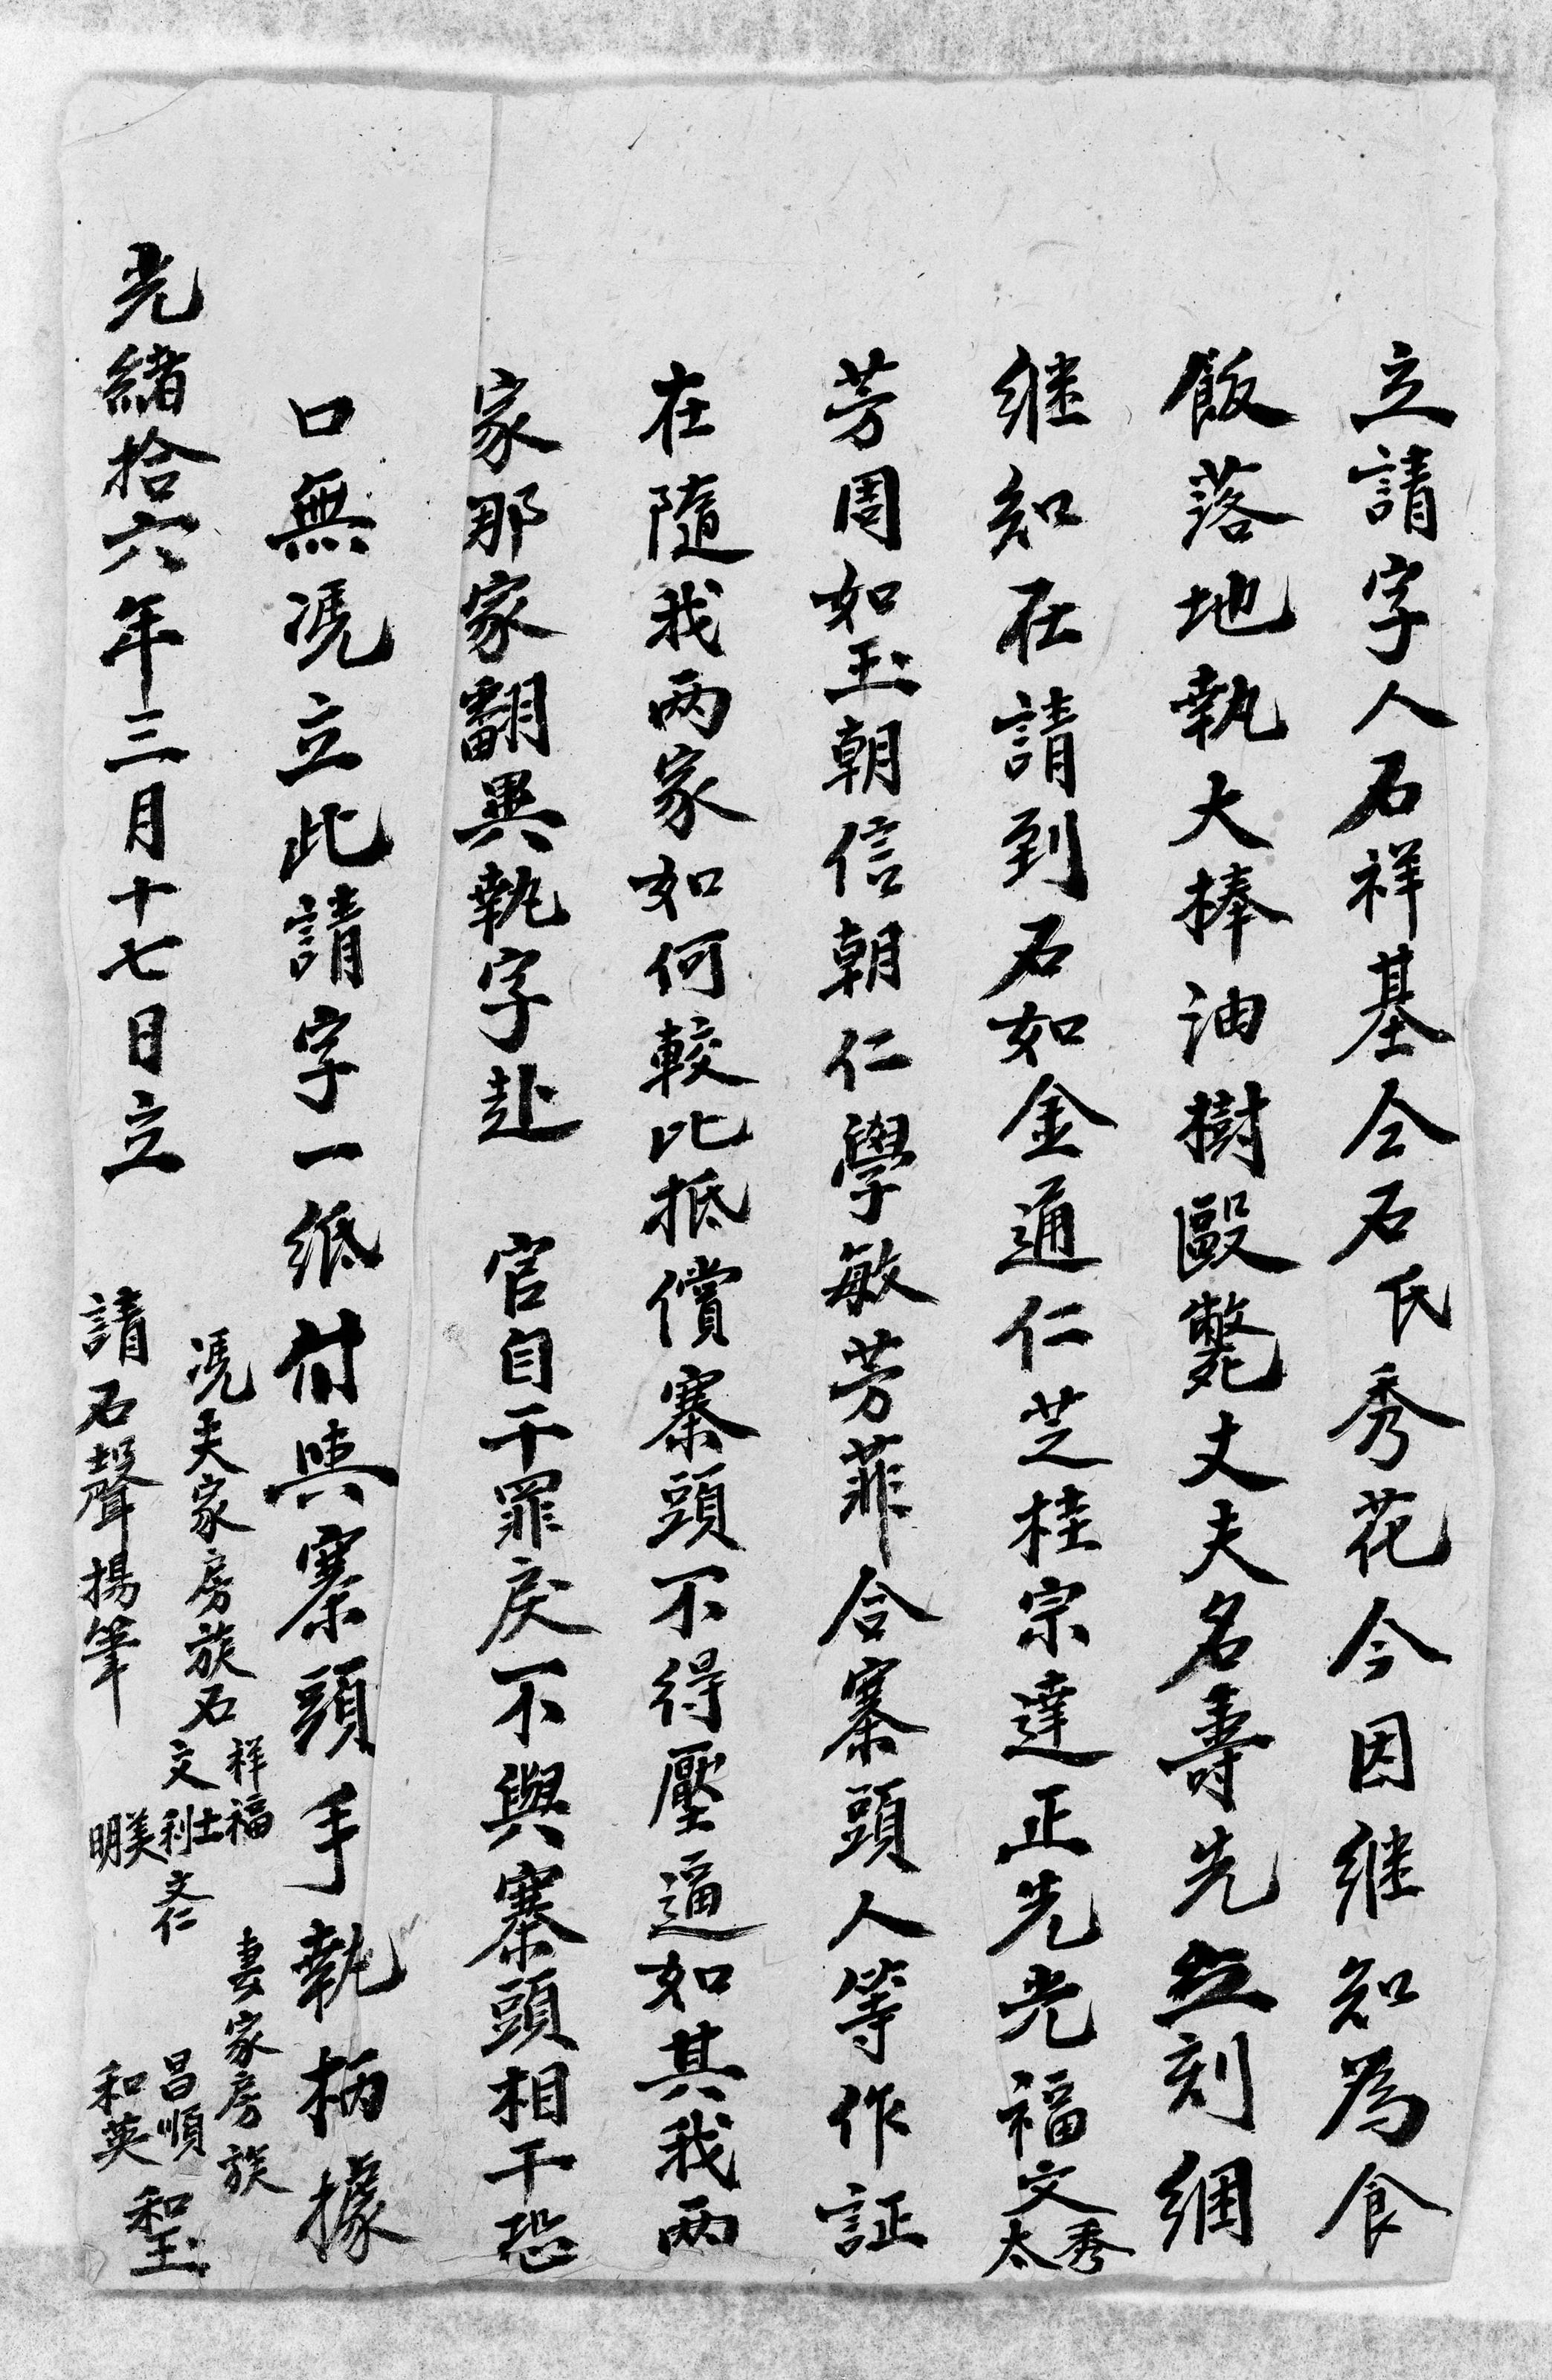 立請字人石祥基仝石氏秀花今因継知為食
飯落地執大棒油樹毆斃丈夫名壽先立刻綑
継知在請到石如金通仁芝桂宗達正先光福文秀太
芳周如玉朝信朝仁學敏芳菲合寨頭人等作証
在隨我两家如何較比抵償寨頭不得壓逼如其我两
家那家翻異執字赴 官自干罪戾不與寨頭相干恐
口無凴立此請字一紙付與寨頭手執柄據
凴夫家房族石祥福文士利美明文仁 妻家房族昌順和英和玉
光緒拾六年三月十七日立 請石聲揚筆